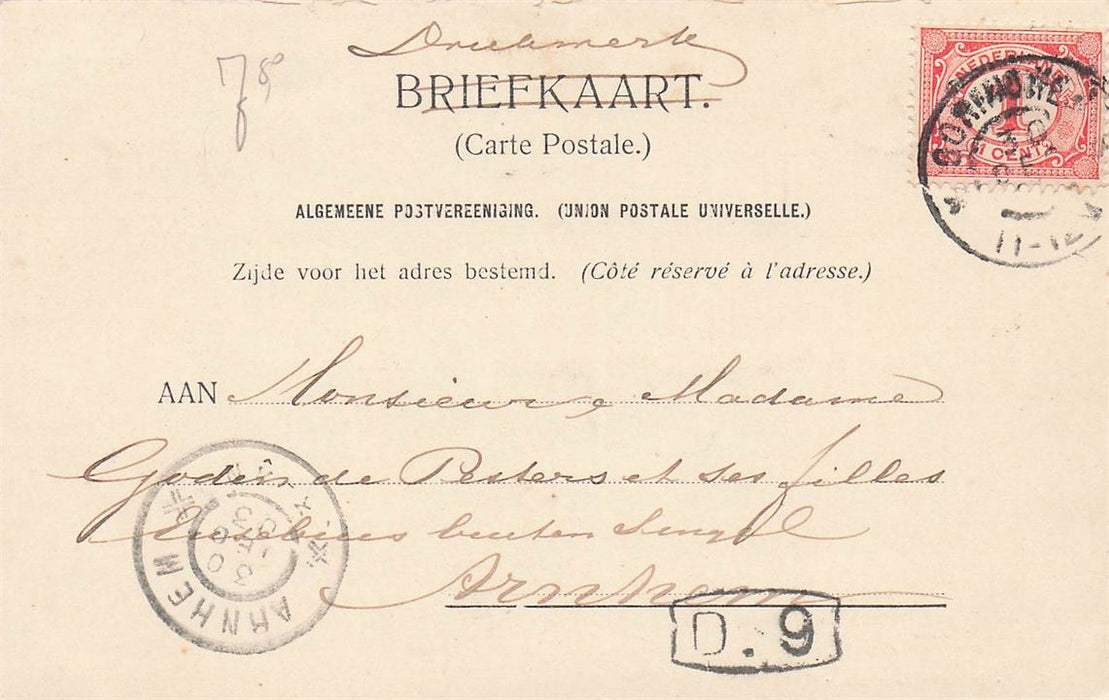 Drukwerk
BRIEFKAART.
(Carte Postale.)
ALGEMEENE POSTVEREENIGING. (UNION POSTALE UNIVERSELLE.)
Zijde voor het adres bestemd. (Côté réservé à l'adresse.)
AAN Monsieur e Madame
Godin de Pesters et ses filles
Eusebius buiten Singel
Arnhem
NEDERLAND
1
1 CENT
11-12
ARNHEM
D. 9